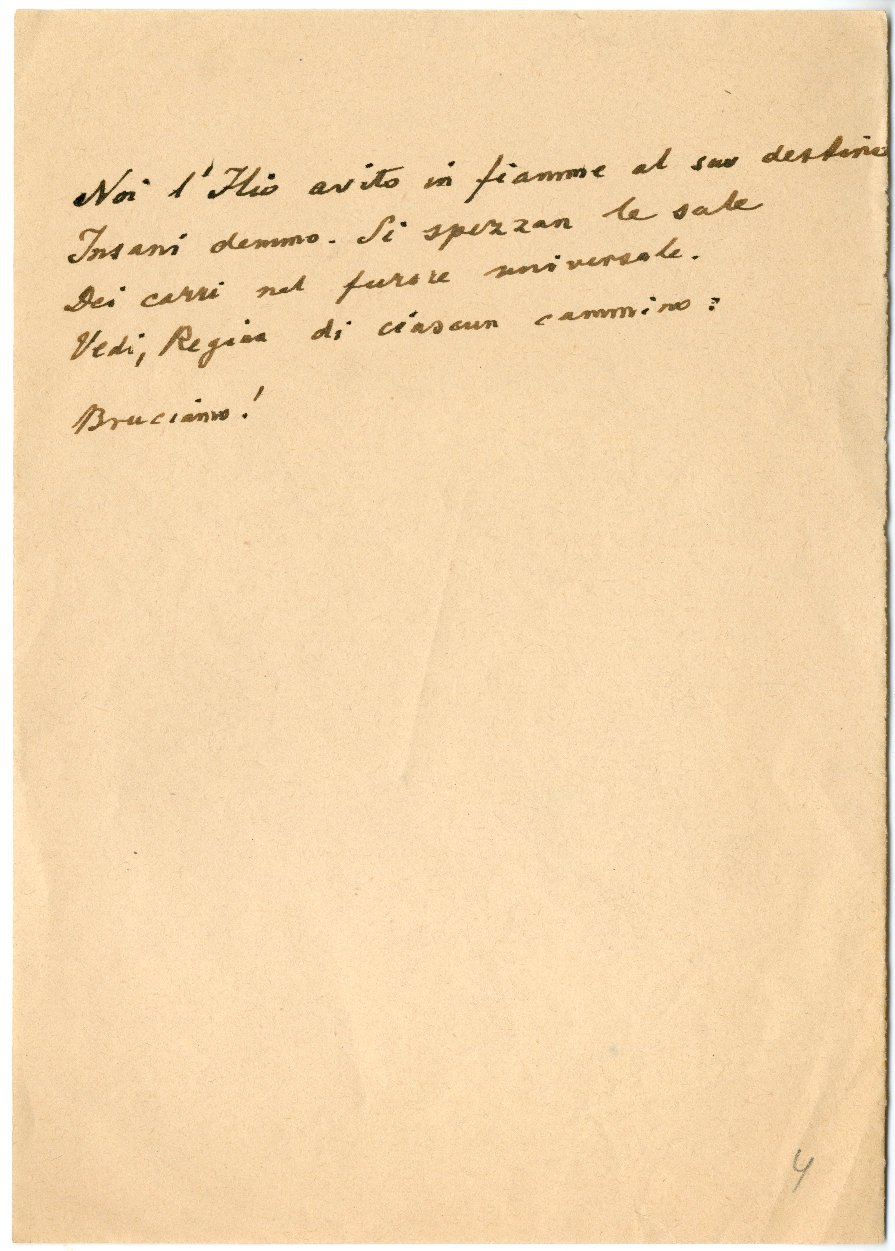 Noi l'Ilio avito in fiamme al suo destino
Insani demmo. Si spezzan le sale
Dei carri nel furore universale.
Vedi, Regina di ciascun cammino:
Bruciamo!
4